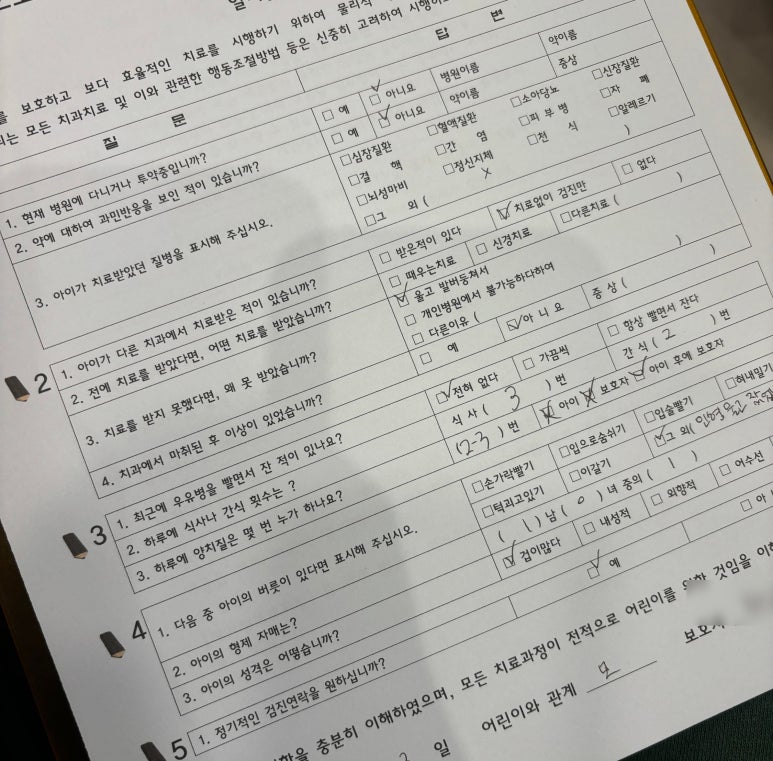 를 보호하고 보다 효율적인 치료를 시행하기 위하여 물리적
는 모든 치과치료 및 이와 관련한 행동조절방법 등은 신중히 고려하여 시행
질 문
답 변
1. 현재 병원에 다니거나 투약중입니까?
□ 예 ☑ 아니요 병원이름 약이름
2. 약에 대하여 과민반응을 보인 적이 있습니까?
□ 예 ☑ 아니요 약이름 증상
3. 아이가 치료받았던 질병을 표시해 주십시오.
□심장질환 □혈액질환 □소아당뇨 □신장질환
□결 핵 □간 염 □피 부 병 □자 폐
□뇌성마비 □정신지체 □천 식 □알레르기
□그 외 ( X )
2
1. 아이가 다른 치과에서 치료받은 적이 있습니까?
□ 받은적이 있다 ☑ 치료없이 검진만 □ 없다
2. 전에 치료를 받았다면, 어떤 치료를 받았습니까?
□ 때우는치료 □ 신경치료 □다른치료 ( )
3. 치료를 받지 못했다면, 왜 못 받았습니까?
☑ 울고 발버둥쳐서
□ 개인병원에서 불가능하다하여
□ 다른이유 ( )
4. 치과에서 마취된 후 이상이 있었습니까?
□ 예 ☑아 니 요 증 상 ( )
3
1. 최근에 우유병을 빨면서 잔 적이 있나요?
☑전혀 없다 □ 가끔씩 □ 항상 빨면서 잔다
2. 하루에 식사나 간식 횟수는 ?
식 사 ( 3 ) 번 간 식 ( 2 ) 번
3. 하루에 양치질은 몇 번 누가 하나요?
(2-3) 번 아이 보호자 아이 후에 보호자
4
1. 다음 중 아이의 버릇이 있다면 표시해 주십시오.
□손가락빨기 □입으로숨쉬기 □입술빨기 □혀내밀기
□턱괴고있기 □이갈기 ☑그 외(
2. 아이의 형제 자매는?
( 1 ) 남 ( 0 ) 녀 중의 ( 1 )
3. 아이의 성격은 어떻습니까?
☑ 겁이많다 □ 내성적 □ 외향적 □ 어수선
5
1. 정기적인 검진연락을 원하십니까?
☑ 예 □ 아
을 충분히 이해하였으며, 모든 치료과정이 전적으로 어린이를 위한 것임을 이해
일 어린이와 관계 모 보호자